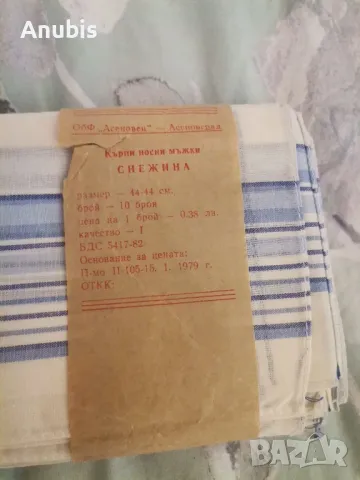 Anubis
„Асеновец" — Асеновград
Кърпи носни мъжки
СНЕЖИНА
размер — 44-44 см.
брой — 10 броя
цена да 1 брой — 0.38 лв
качество — I
БДС 5417-82
Основание за цената:
П-мо П-105-15. 1. 1979 г.
ОТКК:
BAZAR